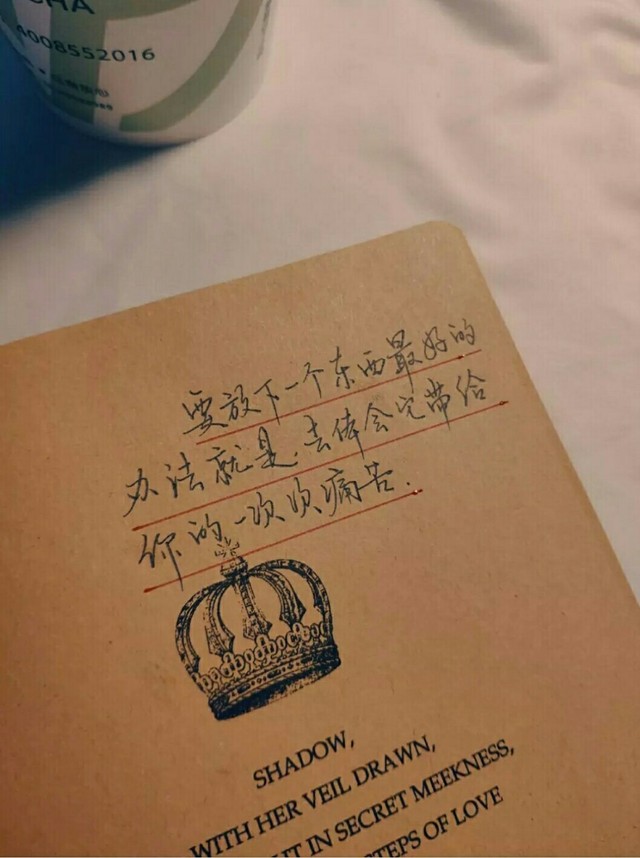 CHA
4008552016
要放下一个东西最好的
办法就是.去体会它带给
你的一次次痛苦.
SHADOW,
WITH HER VEIL DRAWN,
IN SECRET MEEKNESS,
OF LOVE